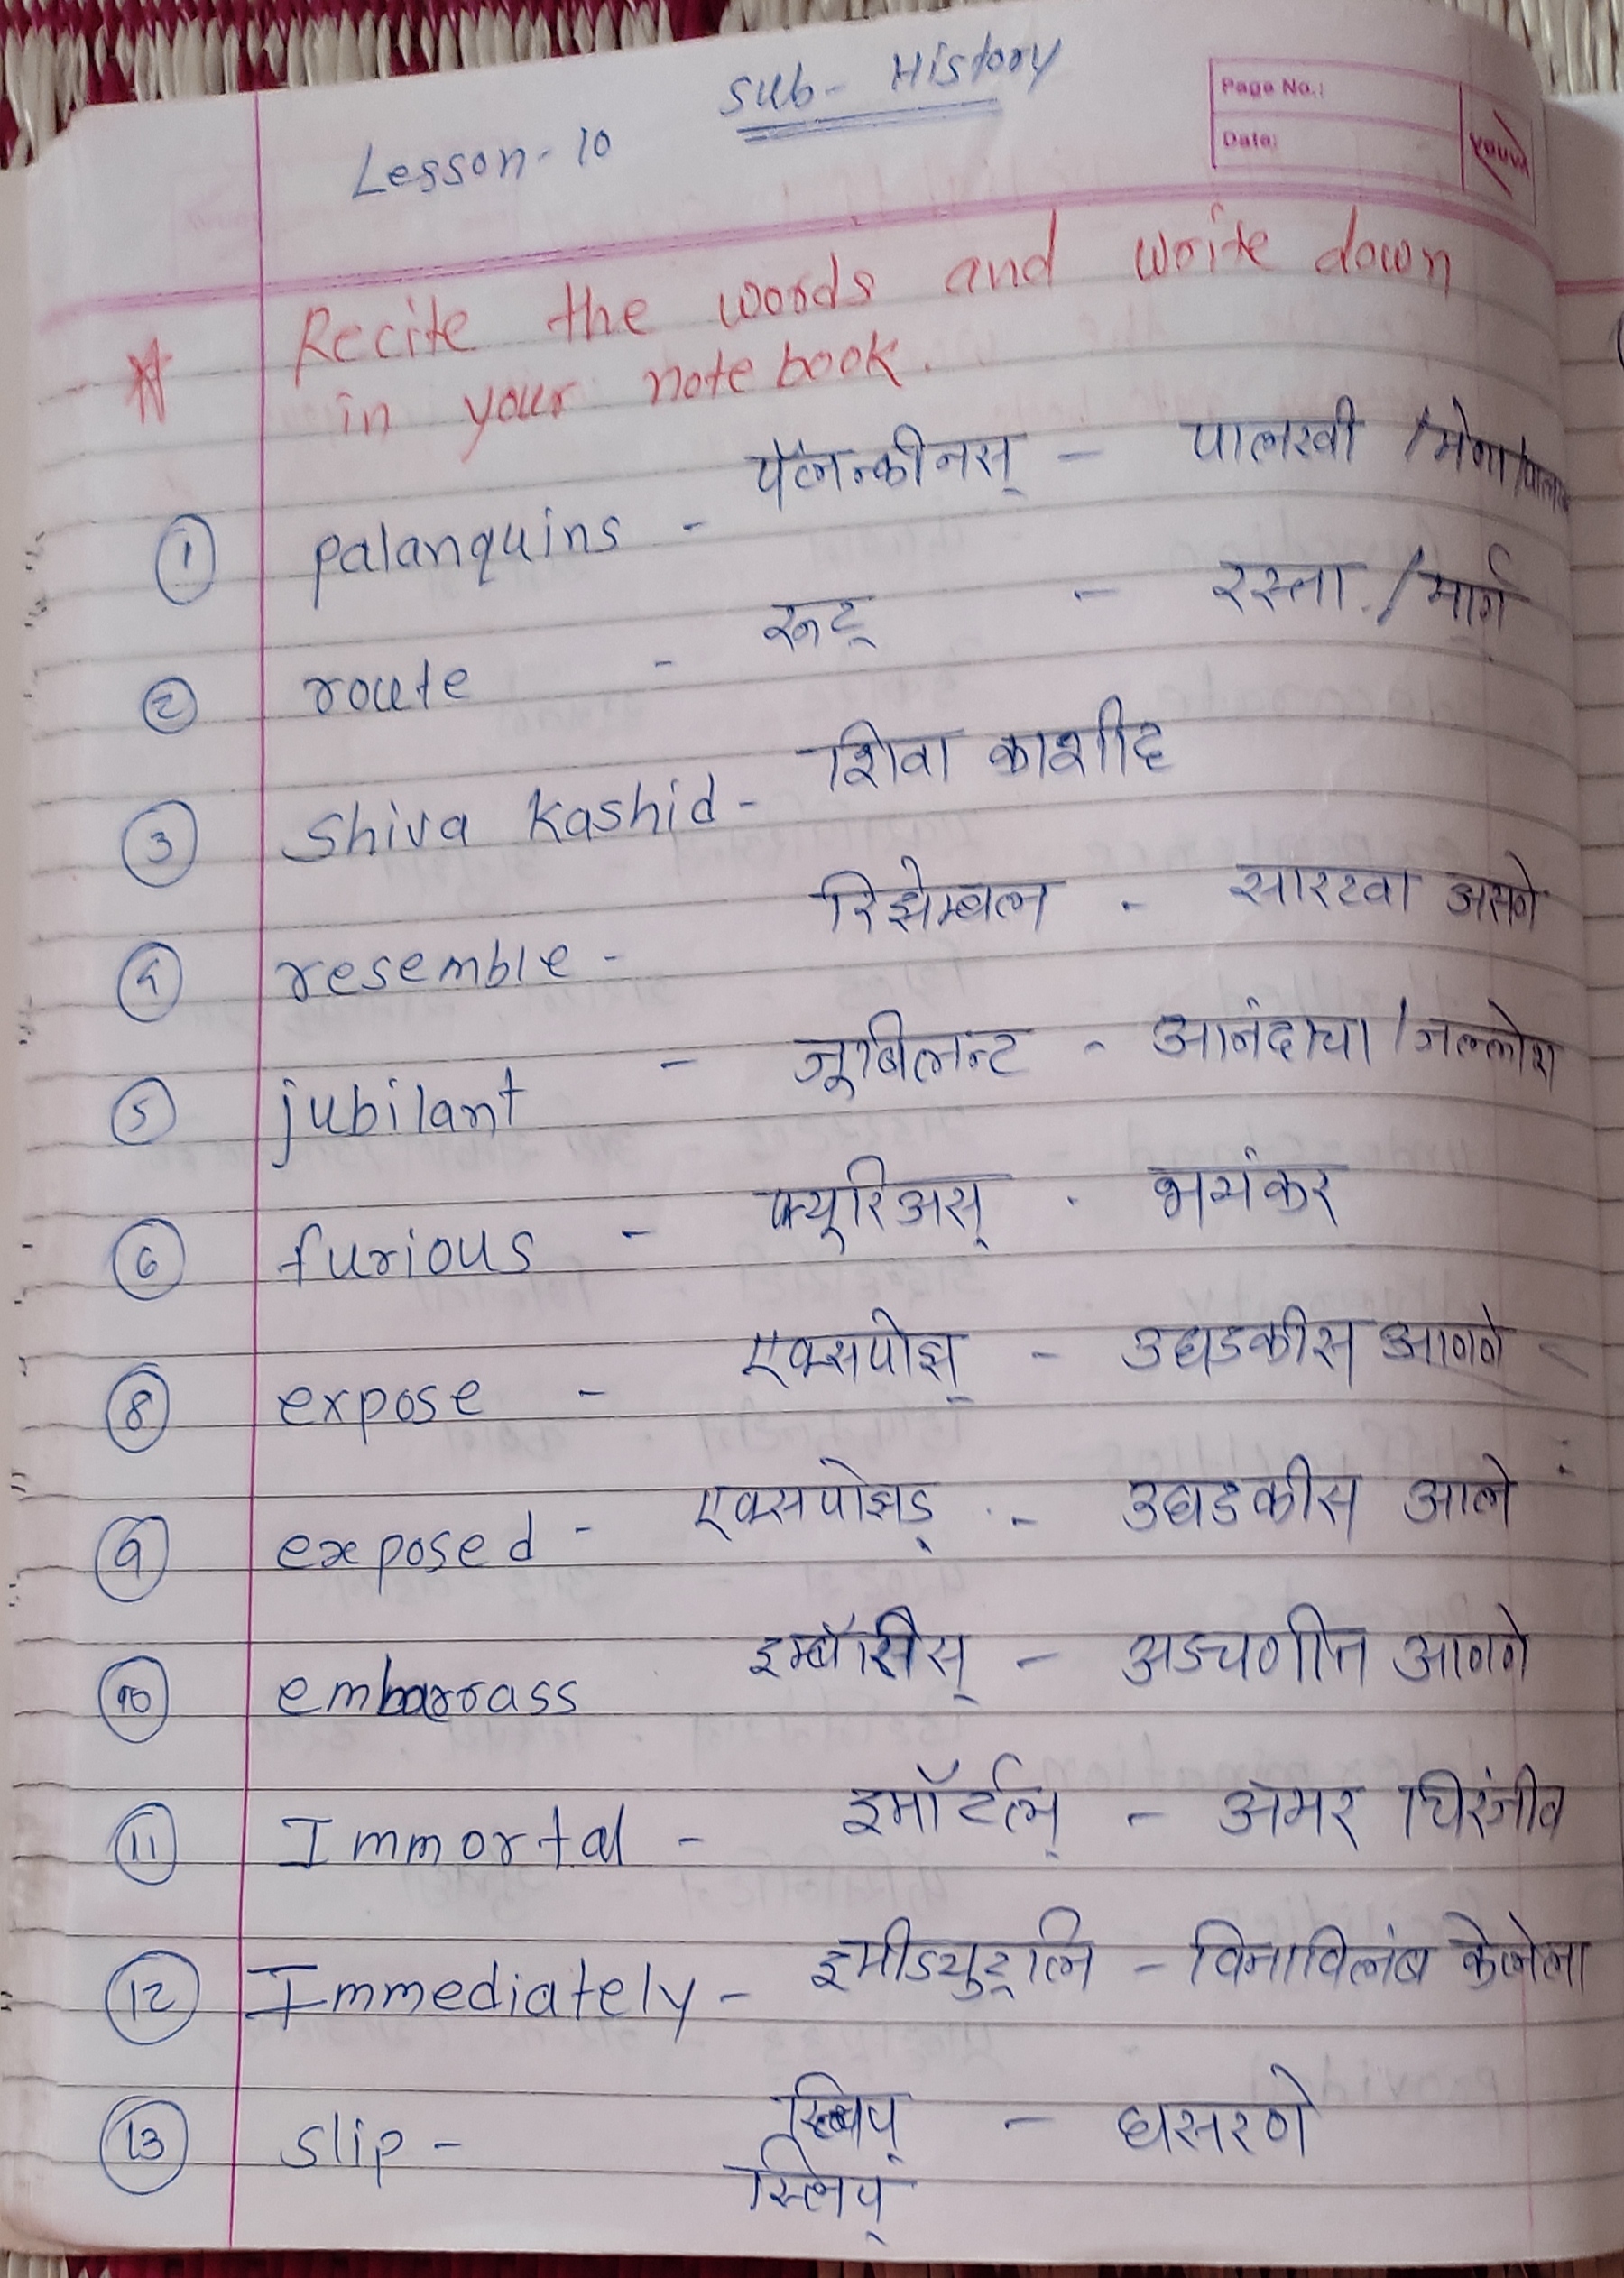 Sub- History
Page No.:
Date:
youva
Lesson-10
Recite the words and write down
in your notebook.
1 palanquins - पॅलनकीनस् - पालखी / मेणा /
2 route - रूट् - रस्ता. / मार्ग
3 Shiva Kashid - शिवा काशीद
4 resemble - रिझेम्बल - सारखा असणे
5 jubilant - जूबिलन्ट - आनंदाचा /
6 furious - फ्युरिअस् - भयंकर
8 expose - एक्सपोझ् - उघडकीस आणणे
9 exposed - एक्सपोझड् - उघडकीस आले
10 embarrass - अडचणीत आणणे
11 Immortal - इमॉर्टल् - अमर चिरंजीव
12 Immediately - इमीड्युट्लि - विनाविलंब केलेला
13 slip - घसरणे
स्लिप्